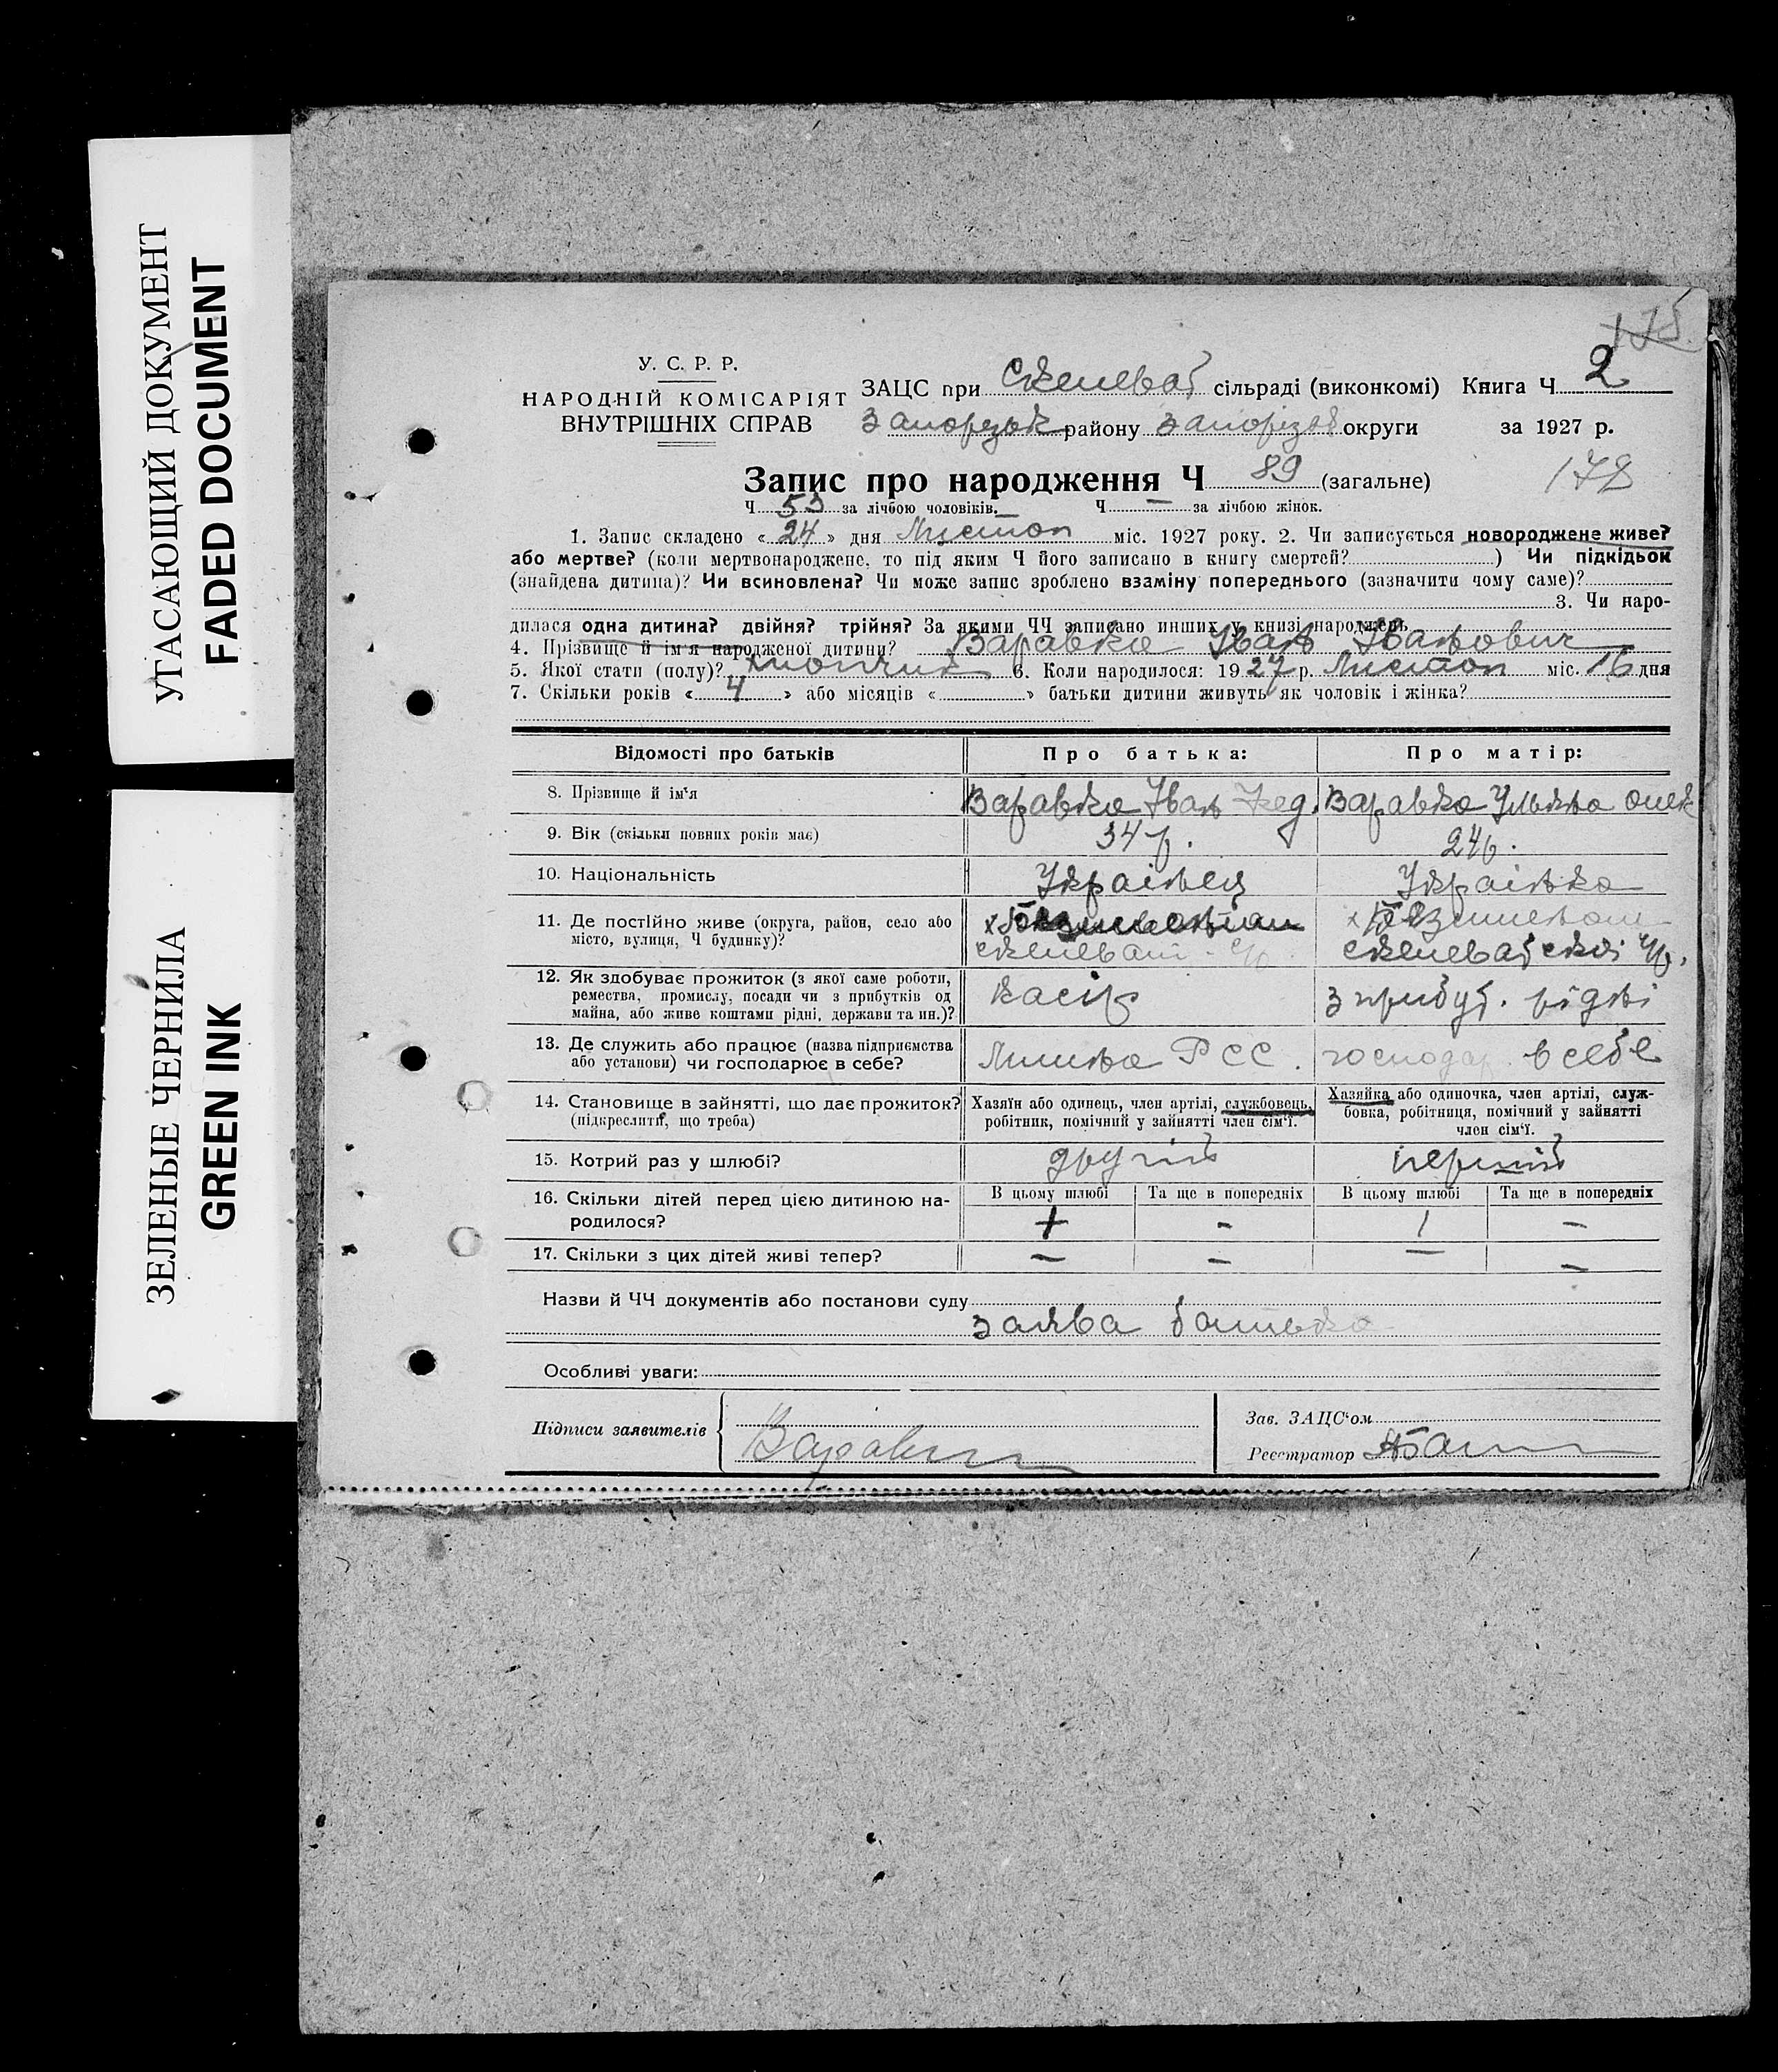 УГАСАЮЩИЙ ДОКУМЕНТ
FADED DOCUMENT
ЗЕЛЕНЫЕ ЧЕРНИЛА
GREEN INK
175.
У. С. Р. Р.
НАРОДНІЙ КОМІСАРІЯТ
ВНУТРІШНІХ СПРАВ
ЗАЦС при Скелеват сільраді (виконкомі) Книга Ч 2
Запорізьк району Запорізьк округи за 1927 р.
Запис про народження Ч 89 (загальне) 178
Ч 53 за лічбою чоловіків. Ч — за лічбою жінок.
1. Запис складено « 24 » дня Листоп міс. 1927 року. 2. Чи записується новороджене живе?
або мертве? (коли мертвонароджене, то під яким Ч його записано в книгу смертей? ) Чи підкідьок
(знайдена дитина)? Чи всиновлена? Чи може запис зроблено взаміну попереднього (зазначити чому саме)?
3. Чи наро-
дилася одна дитина? двійня? трійня? За якими ЧЧ записано инших у книзі народжень
4. Прізвище й ім'я народженої дитини? Варавка Іван Іванович
5. Якої стати (полу)? хлопчик 6. Коли народилося: 1927 р. Листоп міс. 16 дня
7. Скільки років « 4 » або місяців « » батьки дитини живуть як чоловік і жінка?
Відомості про батьків Про батька: Про матір:
8. Прізвище й ім'я Варавка Іван Хед. Варавка Уляна Олек
9. Вік (скільки повних років має) 34 р. 24 р.
10. Національність Українець Українка
11. Де постійно живе (округа, район, село або
місто, вулиця, Ч будинку)?
Скелеват скелеватської
12. Як здобуває прожиток (з якої саме роботи,
ремества, промислу, посади чи з прибутків од
майна, або живе коштами рідні, держави та ин.)?
касір з прибут. рідні
13. Де служить або працює (назва підприємства
або установи) чи господарює в себе?
РСС. господар. в себе
14. Становище в зайнятті, що дає прожиток?
(підкреслити, що треба)
Хазяїн або одинець, член артілі, службовець,
робітник, помічний у зайнятті член сім'ї.
Хазяйка або одиночка, член артілі, служ-
бовка, робітниця, помічний у зайнятті
член сім'ї.
15. Котрий раз у шлюбі? другий перший
16. Скільки дітей перед цією дитиною на-
родилося?
В цьому шлюбі Та ще в попередніх В цьому шлюбі Та ще в попередніх
1 - 1 —
17. Скільки з цих дітей живі тепер? — — — —
Назви й ЧЧ документів або постанови суду
заява батька
Особливі уваги:
Підписи заявителів
Зав. ЗАЦС'ом
Реєстратор